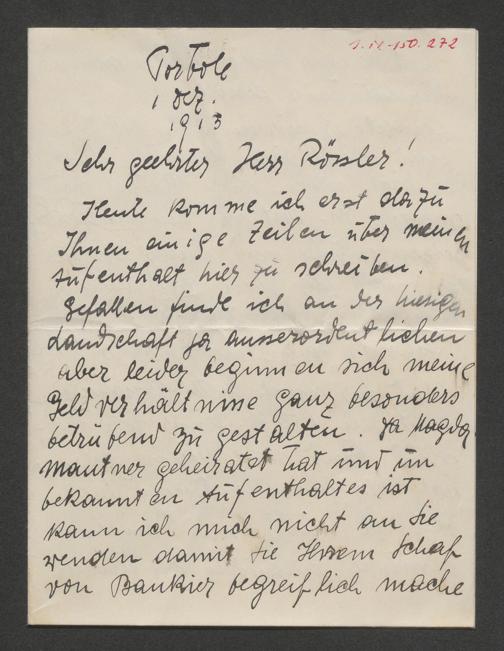 I.N.-150.272
Torbole
1 dez.
1913
Sehr geehrter Herr Rössler!
Heute komme ich erst dazu
Ihnen einige Zeilen über meinen
Aufenthalt hier zu schreiben.
Gefallen finde ich an der hiesigen
Landschaft ja ausserordentlichen
aber leider beginnen sich meine
Geldverhältnisse ganz besonders
betrübend zu gestalten. Da Magda
Mautner geheiratet hat und un
bekannten Aufenthaltes ist
kann ich mich nicht an Sie
wenden damit Sie Ihrem Schaf
von Bankier begreiflich mache